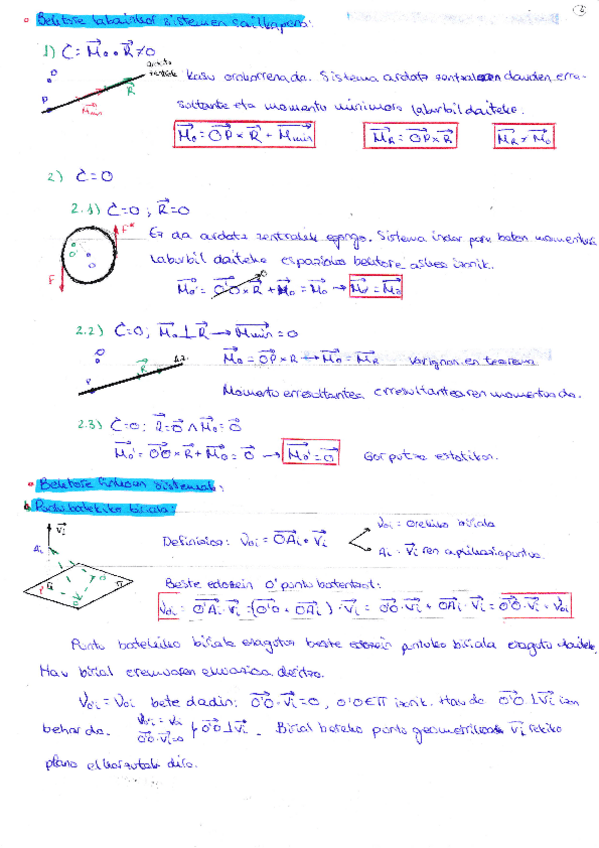 ③
Bektore labainkor sistemen sailkapena:
1) C = M₀ • R ≠ 0
ardatz zentrala
Kasu orokorrena da. Sistema ardatz zentralean dauden erre-
sultante eta momentu minimora laburbil daiteke.
O
P
R
Mmin
M₀ = OP × R + Mmin
M_R = OP × R
M_R ≠ M₀
2) C = 0
2.1) C = 0 ; R = 0
Ez da ardatz zentralik egongo. Sistema indar pare baten momentura
laburbil daiteke espazioko bektore askea izanik.
F
F*
O'
O
M₀' = O'O × R + M₀ = M₀ →
2.2) C = 0; M₀ ⊥ R → Mmin = 0
M₀ = OP × R → M₀ = M_R Varignon en teorema
O
R
P
Momentu erresultantea erresultantearen momentua da.
2.3) C = 0; R = 0 ∧ M₀ = 0
M₀' = O'O × R + M₀ = 0 → M₀' = 0 Gorputza estatikoa.
Bektore finkoen sistemak:
Puntu batekiko biriala:
Definizioa: V₀i = OAi • vi
V₀i = O rekiko biriala
Ai = vi ren aplikazio puntua.
vi
Ai
O
O'
π
Beste edozein O' puntu batentzat:
V₀'i = O'Ai • vi = (O'O + OAi) • vi = O'O • vi + OAi • vi = O'O • vi + V₀i
Puntu batekiko biriala ezagutuz beste edozein puntuko biriala ezagutu daiteke.
Hau birial eremuaren ekuazioa deritzo.
V₀'i = V₀i bete dadin: O'O • vi = 0, O'O ∈ π izanik. Hau da O'O ⊥ vi izan
behar da. V₀'i = V₀i
O'O • vi = 0 } O'O ⊥ vi. Birial bereko puntu geometrikoak vi rekiko
plano elkarzutak dira.